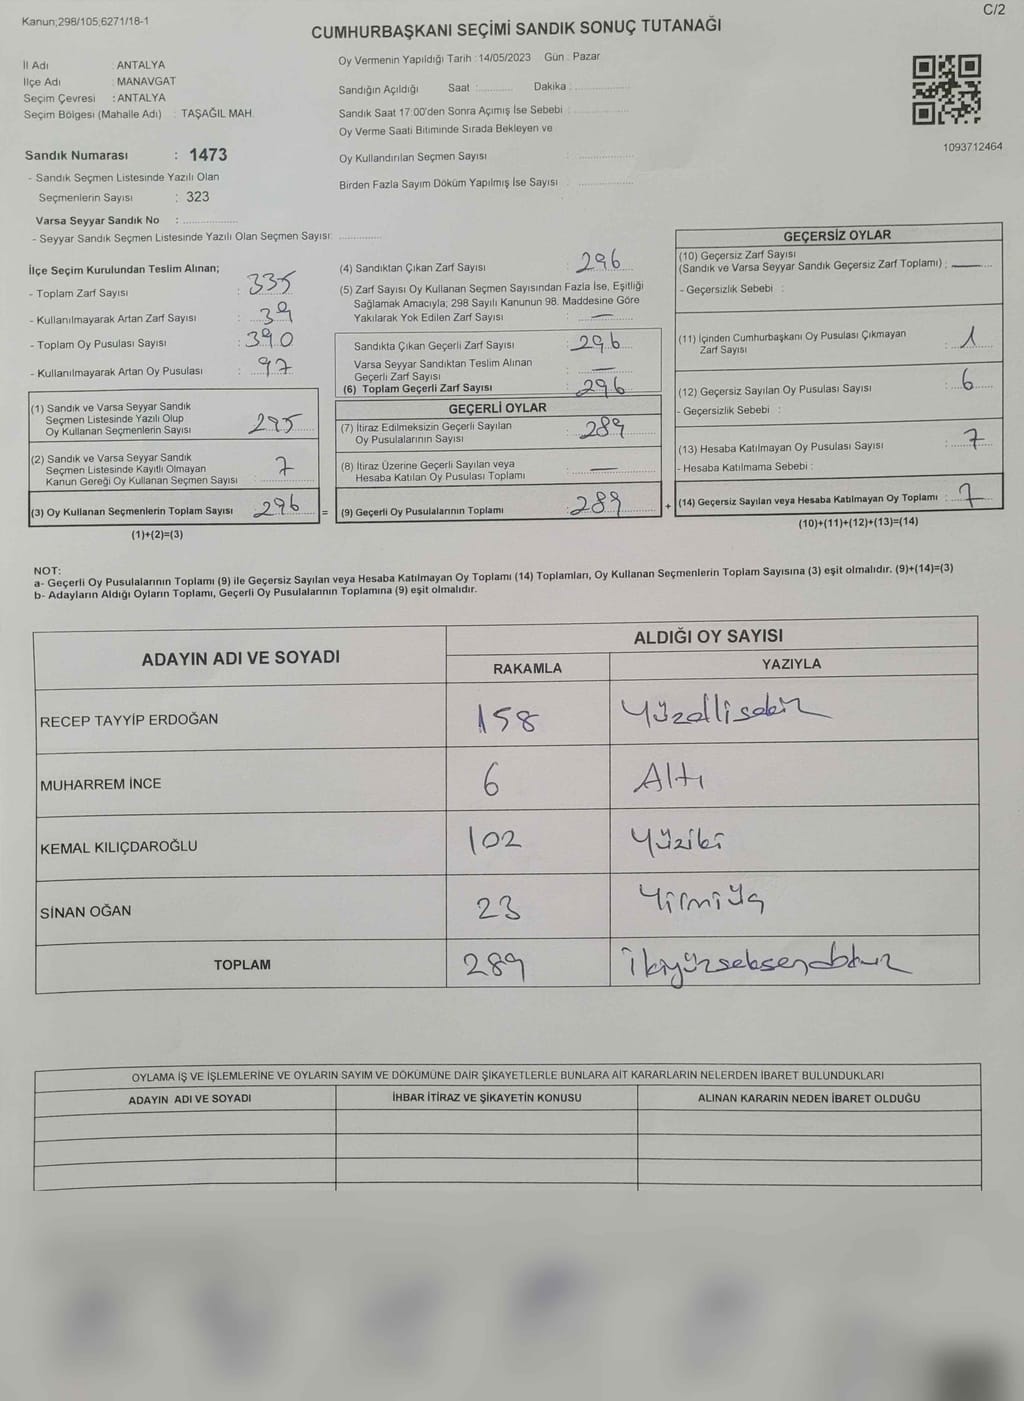 Kanun;298/105;6271/18-1
C/2
CUMHURBAŞKANI SEÇİMİ SANDIK SONUÇ TUTANAĞI
İl Adı : ANTALYA
İlçe Adı : MANAVGAT
Seçim Çevresi : ANTALYA
Seçim Bölgesi (Mahalle Adı) : TAŞAĞIL MAH.
Oy Vermenin Yapıldığı Tarih : 14/05/2023 Gün : Pazar
Sandığın Açıldığı Saat : Dakika :
Sandık Saat 17:00'den Sonra Açımış İse Sebebi :
Oy Verme Saati Bitiminde Sırada Bekleyen ve
Oy Kullandırılan Seçmen Sayısı :
Birden Fazla Sayım Döküm Yapılmış İse Sayısı :
1093712464
Sandık Numarası : 1473
- Sandık Seçmen Listesinde Yazılı Olan
Seçmenlerin Sayısı : 323
Varsa Seyyar Sandık No :
- Seyyar Sandık Seçmen Listesinde Yazılı Olan Seçmen Sayısı:
İlçe Seçim Kurulundan Teslim Alınan;
- Toplam Zarf Sayısı : 335
- Kullanılmayarak Artan Zarf Sayısı : 39
- Toplam Oy Pusulası Sayısı : 390
- Kullanılmayarak Artan Oy Pusulası : 97
(1) Sandık ve Varsa Seyyar Sandık
Seçmen Listesinde Yazılı Olup
Oy Kullanan Seçmenlerin Sayısı : 295
(2) Sandık ve Varsa Seyyar Sandık
Seçmen Listesinde Kayıtlı Olmayan
Kanun Gereği Oy Kullanan Seçmen Sayısı :
(3) Oy Kullanan Seçmenlerin Toplam Sayısı : 296 =
(1)+(2)=(3)
(4) Sandıktan Çıkan Zarf Sayısı : 296
(5) Zarf Sayısı Oy Kullanan Seçmen Sayısından Fazla İse, Eşitliği
Sağlamak Amacıyla; 298 Sayılı Kanunun 98. Maddesine Göre
Yakılarak Yok Edilen Zarf Sayısı : —
Sandıkta Çıkan Geçerli Zarf Sayısı : 296
Varsa Seyyar Sandıktan Teslim Alınan
Geçerli Zarf Sayısı : —
(6) Toplam Geçerli Zarf Sayısı : 296
GEÇERLİ OYLAR
(7) İtiraz Edilmeksizin Geçerli Sayılan
Oy Pusulalarının Sayısı : 289
(8) İtiraz Üzerine Geçerli Sayılan veya
Hesaba Katılan Oy Pusulası Toplamı : —
(9) Geçerli Oy Pusulalarının Toplamı : 289 +
GEÇERSİZ OYLAR
(10) Geçersiz Zarf Sayısı
(Sandık ve Varsa Seyyar Sandık Geçersiz Zarf Toplamı) : —
- Geçersizlik Sebebi :
(11) İçinden Cumhurbaşkanı Oy Pusulası Çıkmayan
Zarf Sayısı : 1
(12) Geçersiz Sayılan Oy Pusulası Sayısı : 6
- Geçersizlik Sebebi :
(13) Hesaba Katılmayan Oy Pusulası Sayısı : 7
- Hesaba Katılmama Sebebi :
(14) Geçersiz Sayılan veya Hesaba Katılmayan Oy Toplamı : 7
(10)+(11)+(12)+(13)=(14)
NOT:
a- Geçerli Oy Pusulalarının Toplamı (9) ile Geçersiz Sayılan veya Hesaba Katılmayan Oy Toplamı (14) Toplamları, Oy Kullanan Seçmenlerin Toplam Sayısına (3) eşit olmalıdır. (9)+(14)=(3)
b- Adayların Aldığı Oyların Toplamı, Geçerli Oy Pusulalarının Toplamına (9) eşit olmalıdır.
ADAYIN ADI VE SOYADI ALDIĞI OY SAYISI
RAKAMLA YAZIYLA
RECEP TAYYİP ERDOĞAN 158 Yüzellisekiz
MUHARREM İNCE 6 Altı
KEMAL KILIÇDAROĞLU 102 Yüziki
SİNAN OĞAN 23 Yirmiüç
TOPLAM 289 İkiyüzseksendokuz
OYLAMA İŞ VE İŞLEMLERİNE VE OYLARIN SAYIM VE DÖKÜMÜNE DAİR ŞİKAYETLERLE BUNLARA AİT KARARLARIN NELERDEN İBARET BULUNDUKLARI
ADAYIN ADI VE SOYADI İHBAR İTİRAZ VE ŞİKAYETİN KONUSU ALINAN KARARIN NEDEN İBARET OLDUĞU